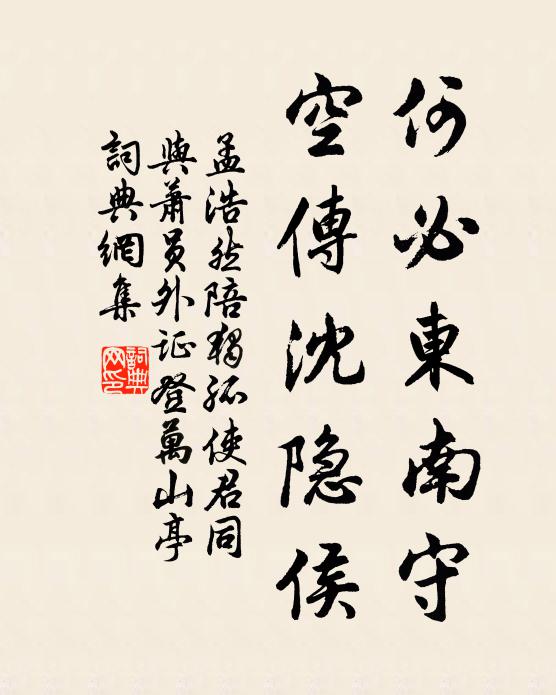 何必東南守
空傳沈隐侯
孟浩然陪獨孤使君同
與蕭員外证登萬山亭
詞典網集
詞典網印